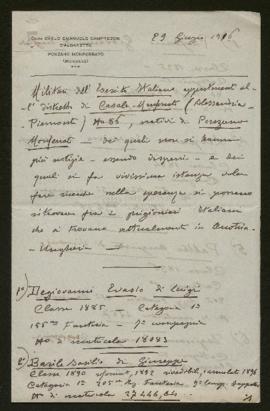 CONTE CARLO EMANUELE CAMPREDON
D'ALBARETTO
PONZANO MONFERRATO
29 Giugno 1916
Militari dell'Esercito Italiano, appartenenti al-
l' distretto di Casale-Monferrato (Alessandria
Piemonte) No 86, nativi di Ponzano
Monferrato – dei quali non si hanno
più notizie – essendo dispersi – e dei
quali si fa vivissima istanza voler
fare ricerche nella speranza si possano
ritrovare fra i prigionieri Italiani
che si trovano attualmente in Austria-
Ungheria
1°) Degiovanni Evasio di Luigi
Classe 1885 Categoria 1a
155mo Fanteria – 7a compagnia
No di matricola 18093
2°) Basile Basilio di Giuseppe
Classe 1890
Categoria 1a 205mo Reg Fanteria, 9a comp.
No di matricola